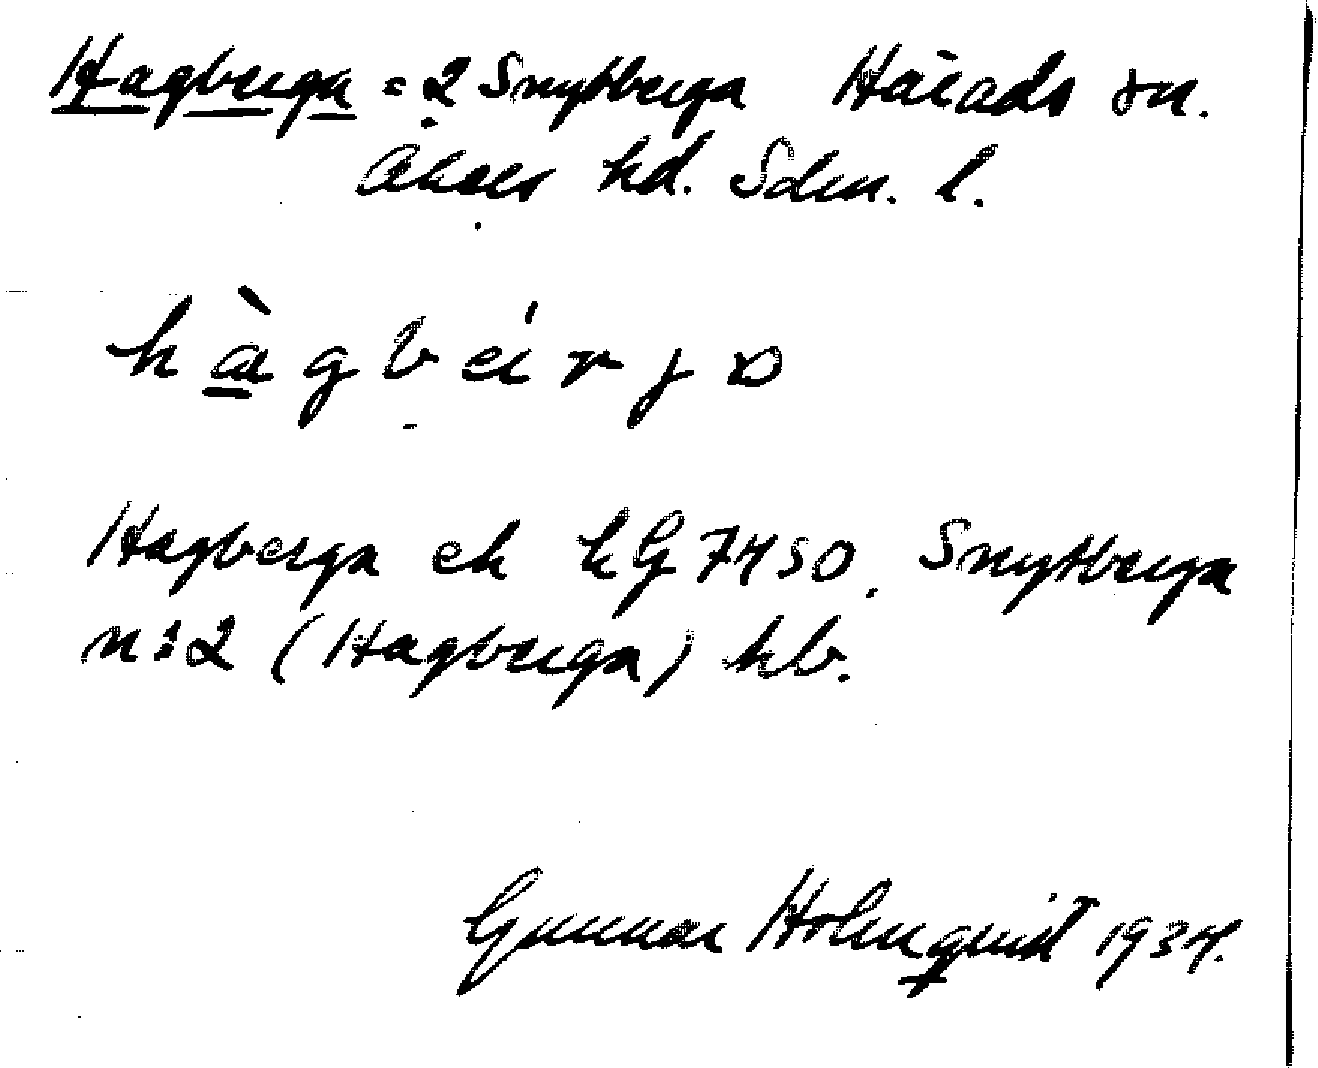 Hagberga = 2 Snytberga Härads sn.
Åkers hd. Södm. l.
hàgbærjα
Hagberga ek hG 7450. Snytberga
n:2 (Hagberga) hb.
Gunnar Holmqvist 1934.